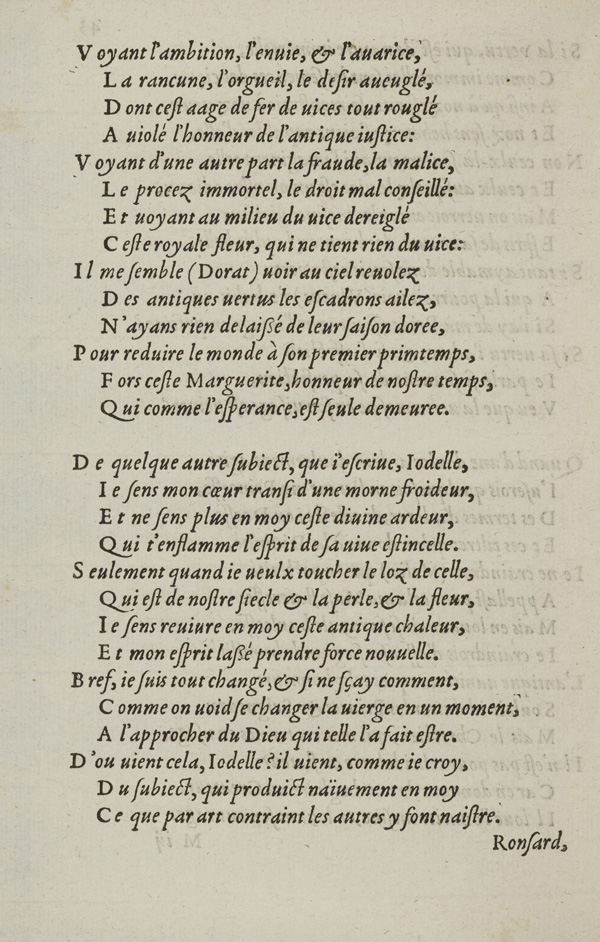 Voyant l'ambition, l'enuie, & l'auarice,
La rancune, l'orgueil, le desir aueuglé,
Dont cest aage de fer de uices tout rouglé
A uiolé l'honneur de l'antique iustice:
Voyant d'une autre part la fraude, la malice,
Le procez immortel, le droit mal conseillé:
Et uoyant au milieu du uice dereiglé
Ceste royale fleur, qui ne tient rien du uice:
Il me semble (Dorat) uoir au ciel reuolez
Des antiques uertus les escadrons ailez,
N'ayans rien delaißé de leur saison doree,
Pour reduire le monde à son premier primtemps,
Fors ceste Marguerite, honneur de nostre temps,
Qui comme l'esperance, est seule demeuree.
De quelque autre subiect, que i'escriue, Iodelle,
Ie sens mon cœur transi d'une morne froideur,
Et ne sens plus en moy ceste diuine ardeur,
Qui t'enflamme l'esprit de sa uiue estincelle.
Seulement quand ie ueulx toucher le loz de celle,
Qui est de nostre siecle & la perle, & la fleur,
Ie sens reuiure en moy ceste antique chaleur,
Et mon esprit laßé prendre force nouuelle.
Bref, ie suis tout changé, & si ne sçay comment,
Comme on uoid se changer la uierge en un moment,
A l'approcher du Dieu qui telle l'a fait estre.
D'ou uient cela, Iodelle? il uient, comme ie croy,
Du subiect, qui produict naïuement en moy
Ce que par art contraint les autres y font naistre.
Ronsard,